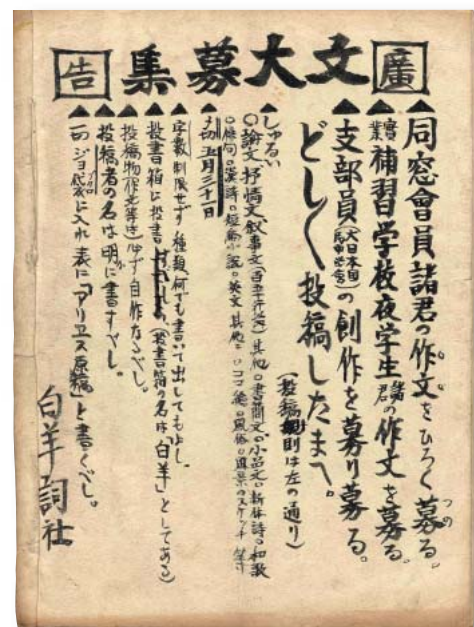 廣 文大募集 告
▲同窓會員諸君の作文をひろく募る。
▲實業補習学校夜学生諸君の作文を募る。
▲支部員(大日本国民中学会)の創作を募り募る。
どしどし投稿したまへ。
(投稿規則は左の通り)
▲しゅるい
〇論文 抒情文 叙事文 其他。書簡文。小品文。新体詩。和歌
。俳句。漢詩。短篇小説。英文 其他
▲〆切 五月三十一日
▲字数制限せず 種類何でも書いて出してもよし。
▲投書箱に投書(投書箱の名は「白羊」としてある)
▲投稿物作文等は必ず自作なるべし。
▲投稿者の名は明に書すべし。
▲に入れ表に「アリエス原稿」と書くべし。
白羊詞社